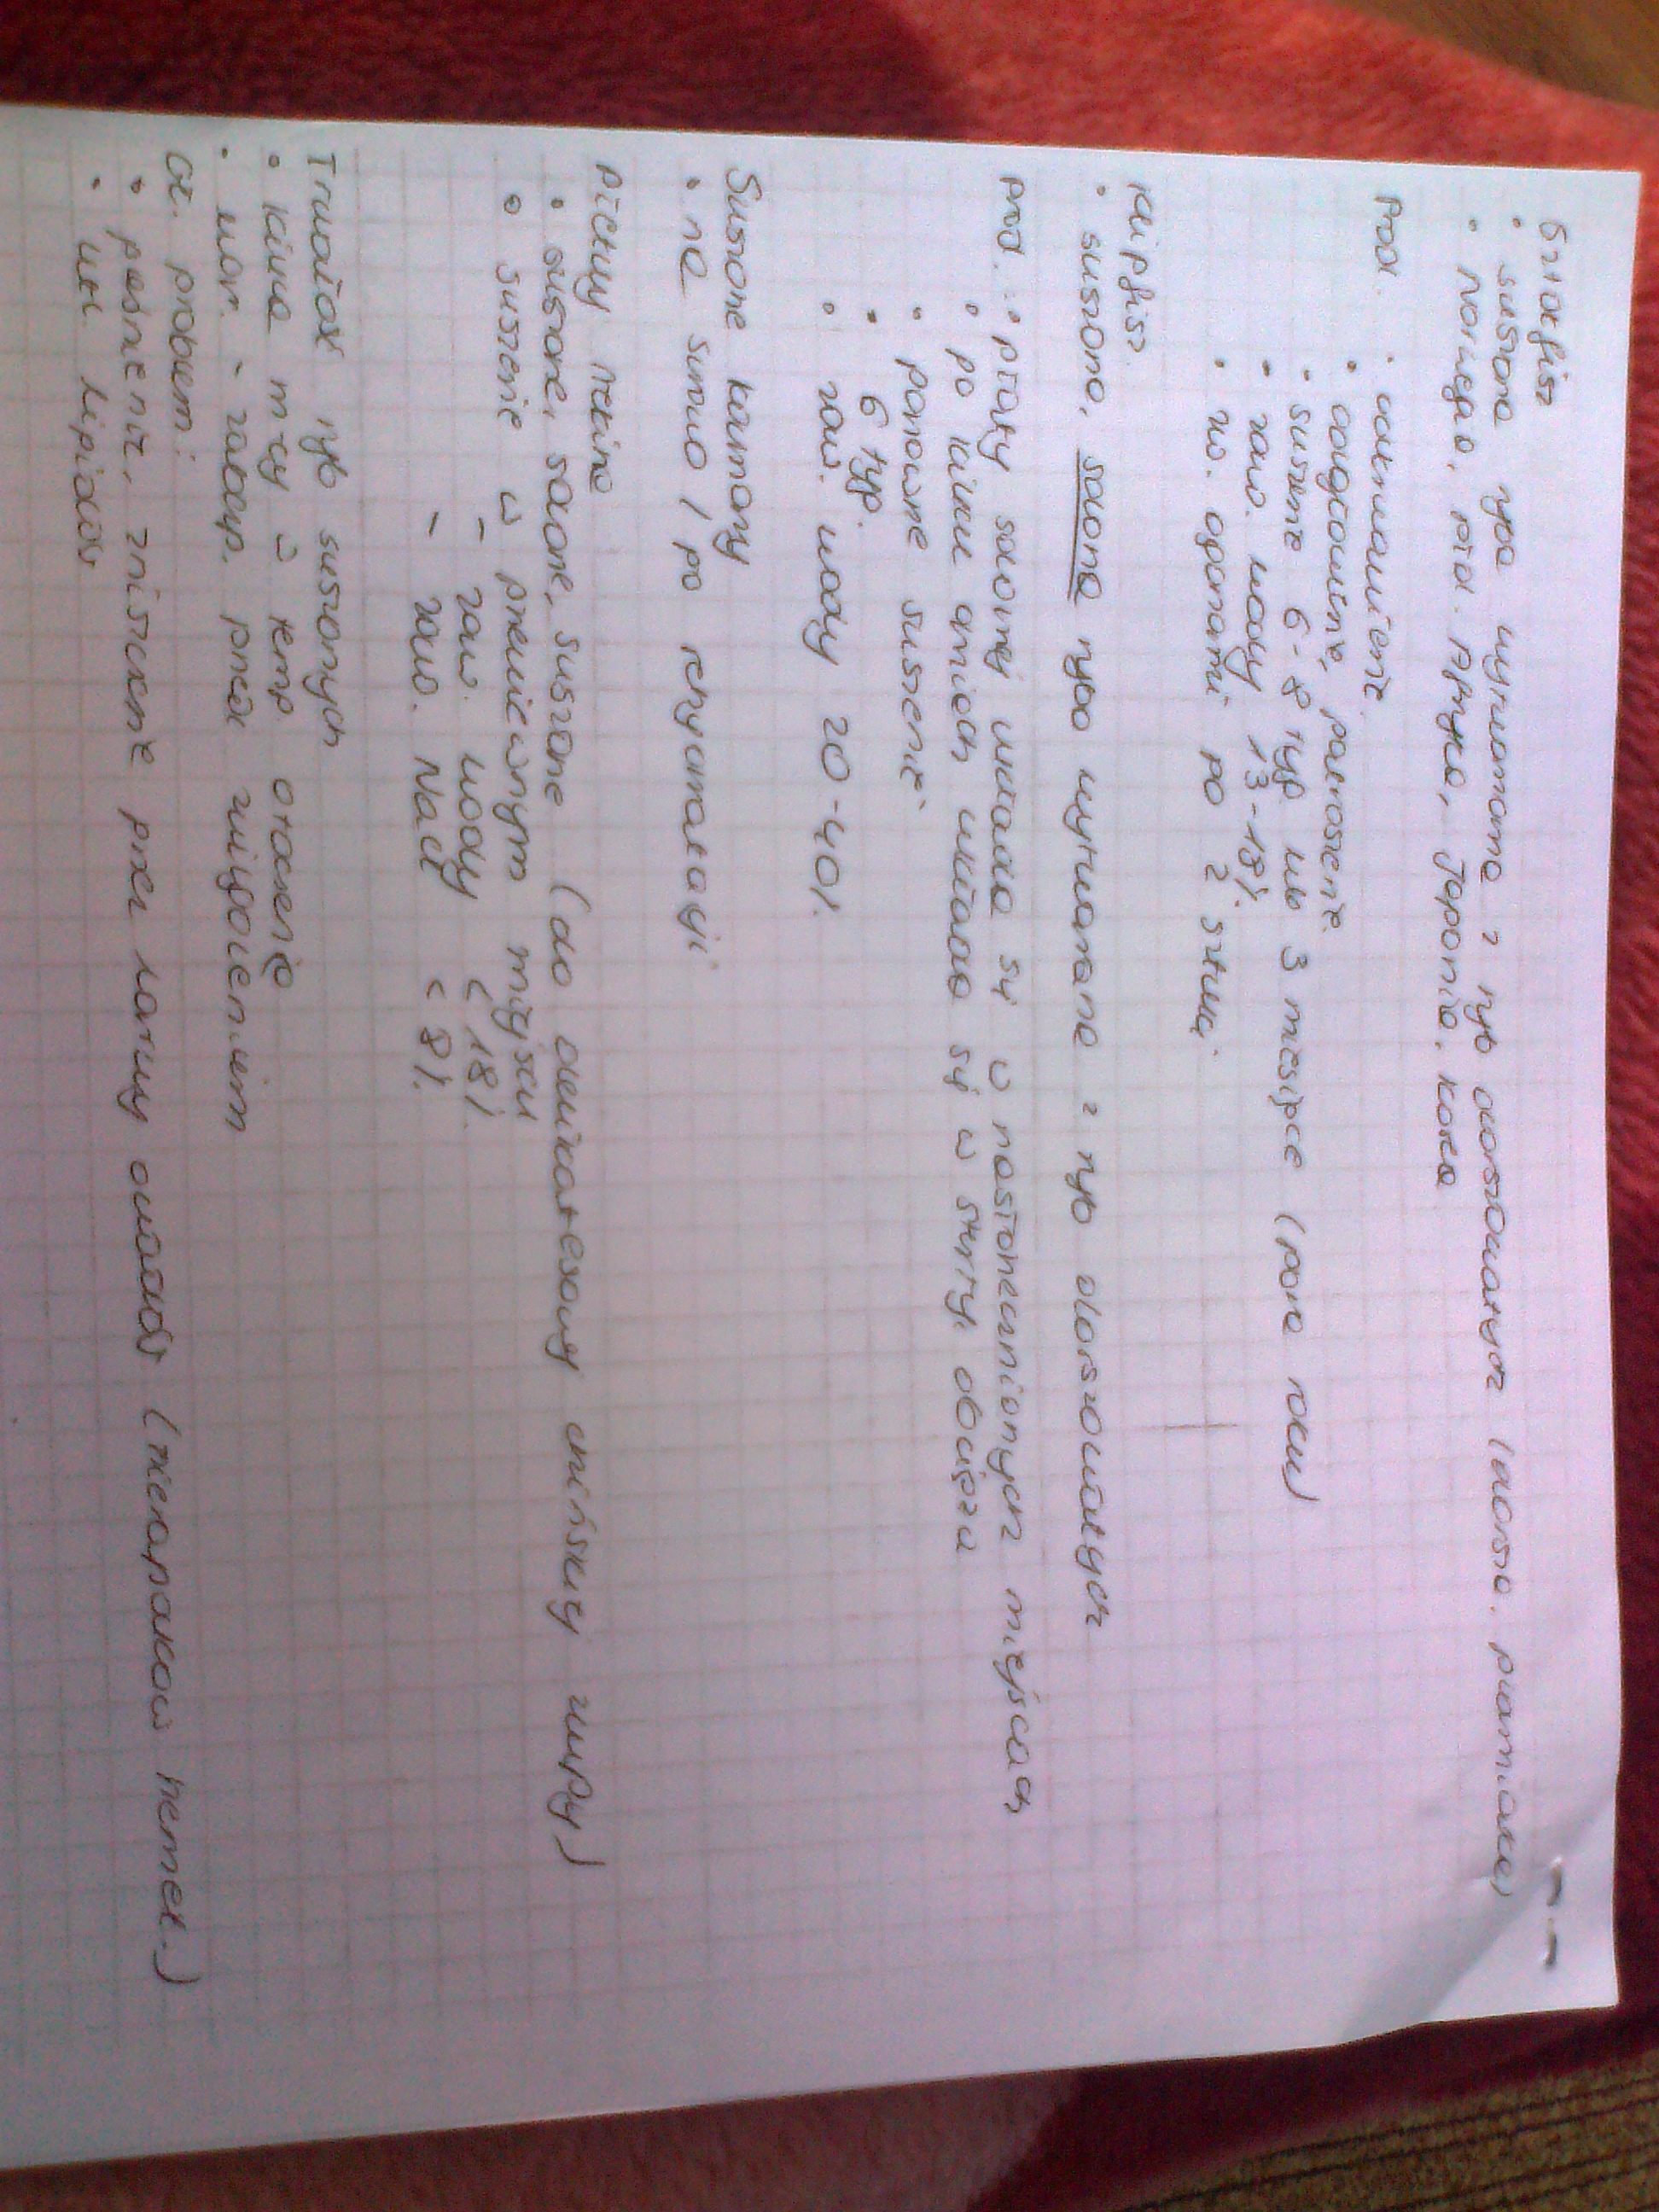 Sztokfisz
• suszona ryba wytwarzana z ryb dorszowatych (dorsz, plamiak)
• Norwegia, płd. Afryka, Japonia, Korea
Prod. • odkrwawienie
• odgławianie, patroszenie
• suszenie 6-8 tyg. lub 3 miesiące (pora roku)
• zaw. wody 13-18%
• zw. ogonami po 2 sztuki
Klipfisz
• suszona, solona ryba wytwarzana z ryb dorszowatych
prod. • płaty solonej układa się w nasłonecznionych miejscach
• po kilku dniach układa się w sterty, obciąża
• ponowne suszenie
• 6 tyg.
• zaw. wody 20-40%
Suszone kalmary
• na surowo / po rehydratacji
Płetwy rekina
• suszone, solone, suszone (do delikatesowej chińskiej zupy)
• suszenie w przewiewnym miejscu
- zaw. wody < 18%
- zaw. NaCl < 8%
Trwałość ryb suszonych
• kilka m-cy w temp. otoczenia
• war. - zabezp. przed zwilgoceniem
Gł. problem:
• pleśnienie, zniszczenie przez larwy owadów (nieopakow. hermet.)
• utl. lipidów